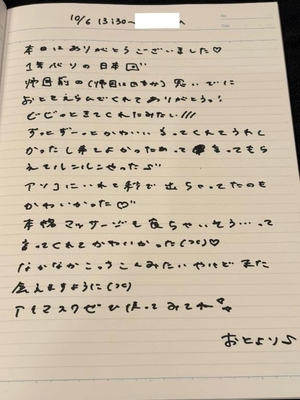 10/6 13:30〜 へ
本日はありがとうございました♡
1年ぶりの日本
帰国前の(帰国になるか) 思いでに
おとをえらんでくれてありがとう!
ビビッときてくれたみたい!!!
ずっとずーっとかわいい言ってくれてうれし
かったし来てよかったあって言ってもら
えてルンルンやった♪
アソコにいれて秒で出ちゃってたのも
かわいかった♡
本格マッサージも寝ちゃいそう…って
言ってくれてかわいかった ♡
なかなかこっちこんみたいやけどまた
会えますように
アイマスクぜひ使ってみてね
おとより♪